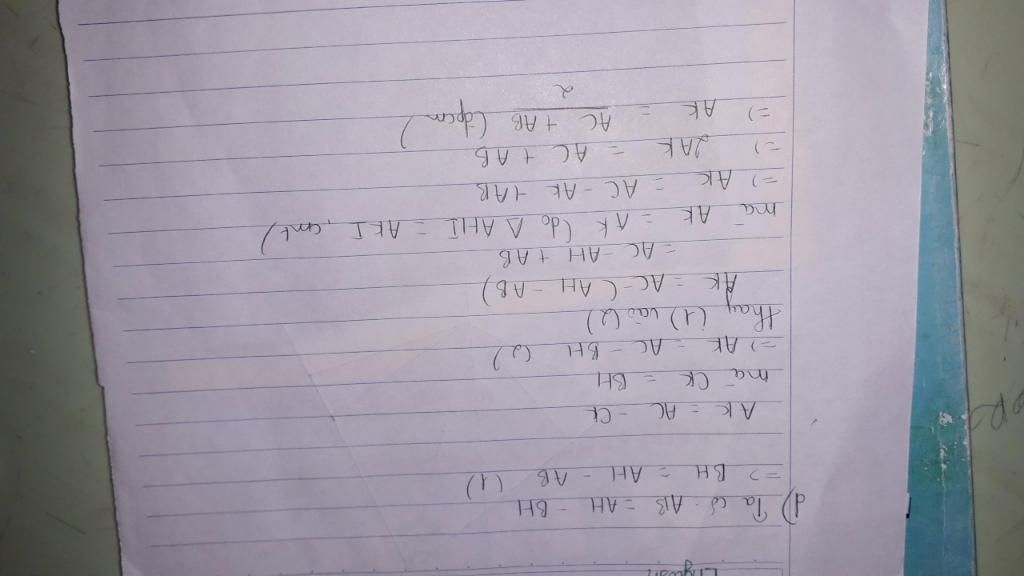 English
d) Ta có: AB = AH - BH
=> BH = AH - AB (1)
AK = AC - CK
mà CK = BH
=> AK = AC - BH (2)
thay (1) vào (2)
AK = AC - (AH - AB)
= AC - AH + AB
mà AK = AK (do △ AHI = AKI, cmt)
=> AK = AC - AK + AB
=> 2AK = AC + AB
=> AK = AC + AB (đpcm)
2